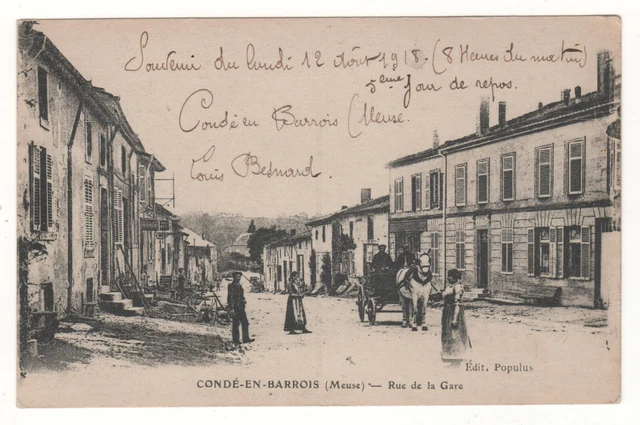 Souvenir du lundi 12 Août 1918 - (8 Heures du matin)
5ème Jour de repos.
Condé en Barrois (Meuse.
Louis Besnard.
Édit. Populus
CONDÉ-EN-BARROIS (Meuse) — Rue de la Gare